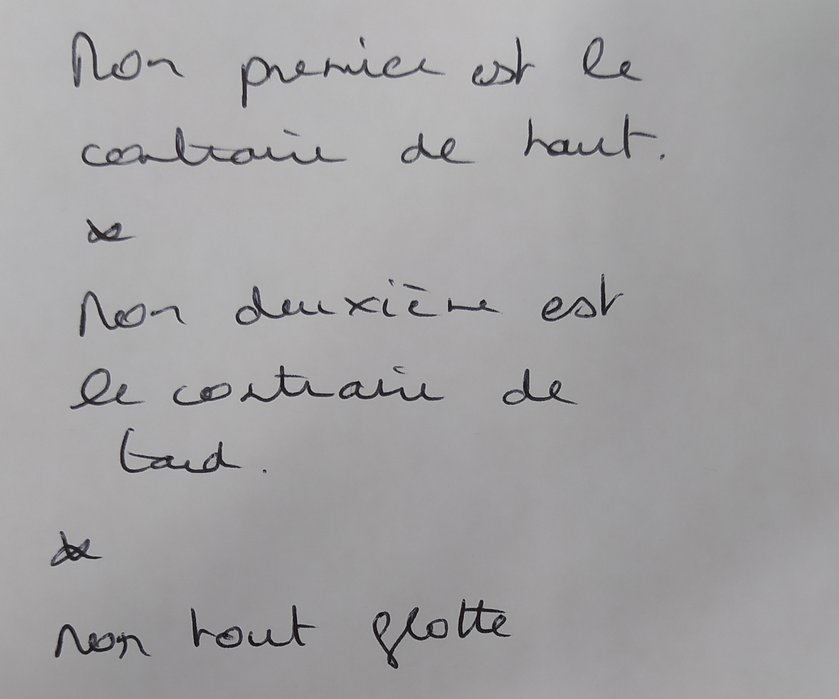 Mon premier est le
contraire de haut.
*
Mon deuxième est
le contraire de
tard.
*
Mon tout flotte